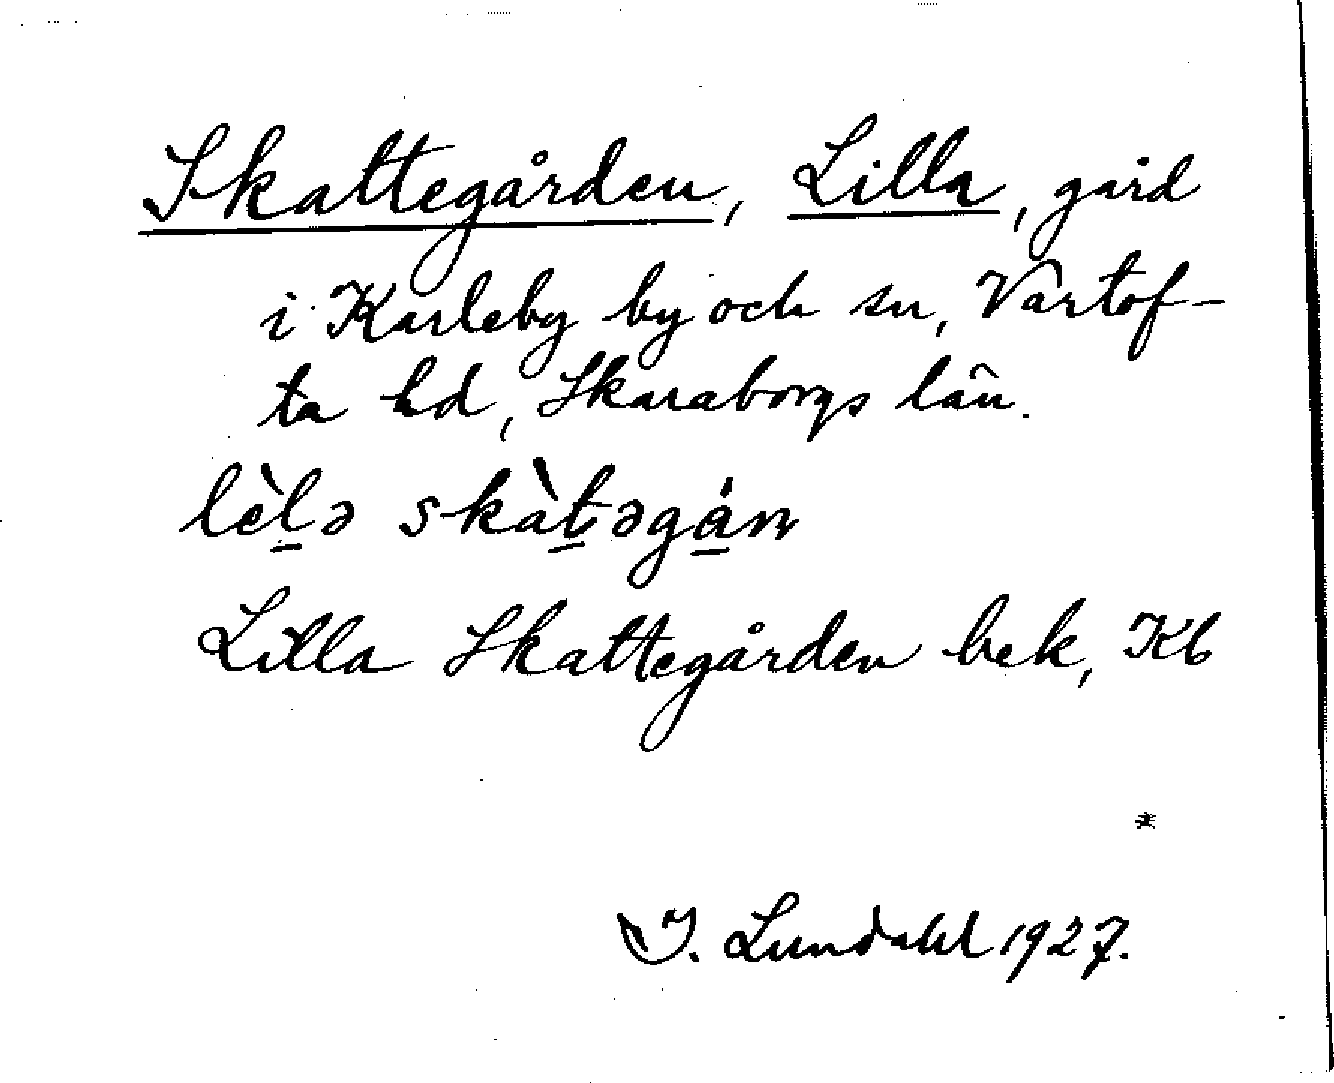 Skattegården, Lilla, gård
i Karleby by och sn, Vartof-
ta hd, Skaraborgs län.
lèl̠ə skàt̠əgá̠n
Lilla Skattegården bek, Kb
*
I. Lundahl 1927.